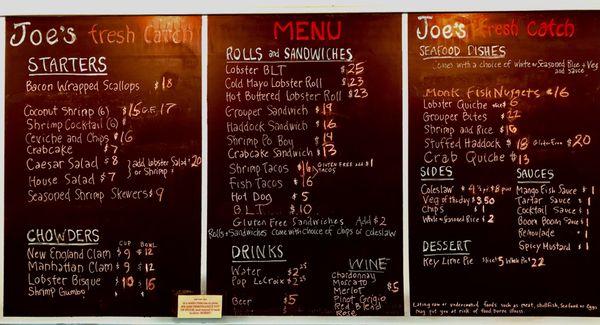 Joe's fresh Catch
STARTERS
Bacon Wrapped Scallops $18
Coconut Shrimp (6) $15 G.F. 17
Shrimp Cocktail (6)
Ceviche and Chips $16
Crabcake $7
Caesar Salad $8
House Salad $7
add lobster Salad $20
or Shrimp
Seasoned Shrimp Skewers $9
CHOWDERS
CUP BOWL
New England Clam $9 $12
Manhattan Clam $9 $12
Lobster Bisque $10 $16
Shrimp Gumbo
MENU
ROLLS and SANDWICHES
Lobster BLT $25
Cold Mayo Lobster Roll $23
Hot Buttered Lobster Roll $23
Grouper Sandwich $19
Haddock Sandwich $16
Shrimp Po Boy $14
Crabcake Sandwich $13
Shrimp Tacos $16 GLUTEN FREE ADD $1
TACOS
Fish Tacos $16
Hot Dog $5
BLT $10
Gluten Free Sandwiches Add $2
Rolls + Sandwiches come with choice of chips or coleslaw
DRINKS
Water $2
Pop LaCroix $2
Beer $5
WINE
Chardonnay
Moscato
Merlot $5
Pinot Grigio
Red Blend
Rose
Joe's Fresh Catch
SEAFOOD DISHES
Comes with a choice of white or Seasoned Rice + Veg
and sauce
Monk Fish Nuggets $16
Lobster Quiche 6
Grouper Bites $22
Shrimp and Rice $16
Stuffed Haddock $18 Gluten Free $20
Crab Quiche $13
SIDES
Coleslaw
Veg of the day $3.50
Chips $1
White or Seasoned Rice $2
SAUCES
Mango Fish Sauce $1
Tartar Sauce $1
Cocktail Sauce $1
Boom Boom Sauce $1
Remoulade $1
Spicy Mustard $1
DESSERT
Key Lime Pie Slice $5 Whole Pie $22
Eating raw or undercooked foods such as meat, shellfish, Seafood or Eggs
may put you at risk of food borne illness.